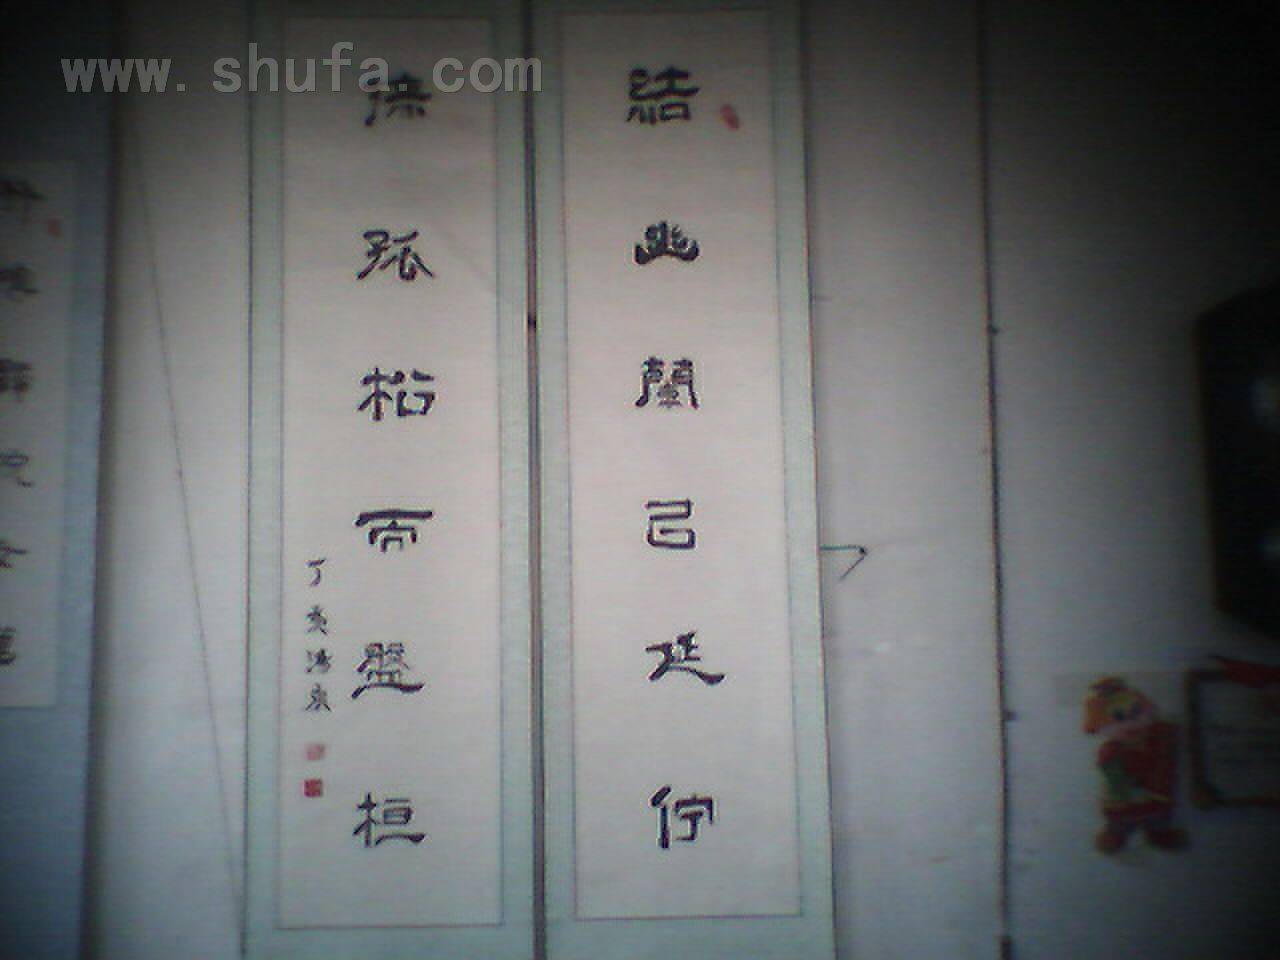 www.shufa.com
結幽蘭㠯延佇
撫孤松而盤桓
丁亥